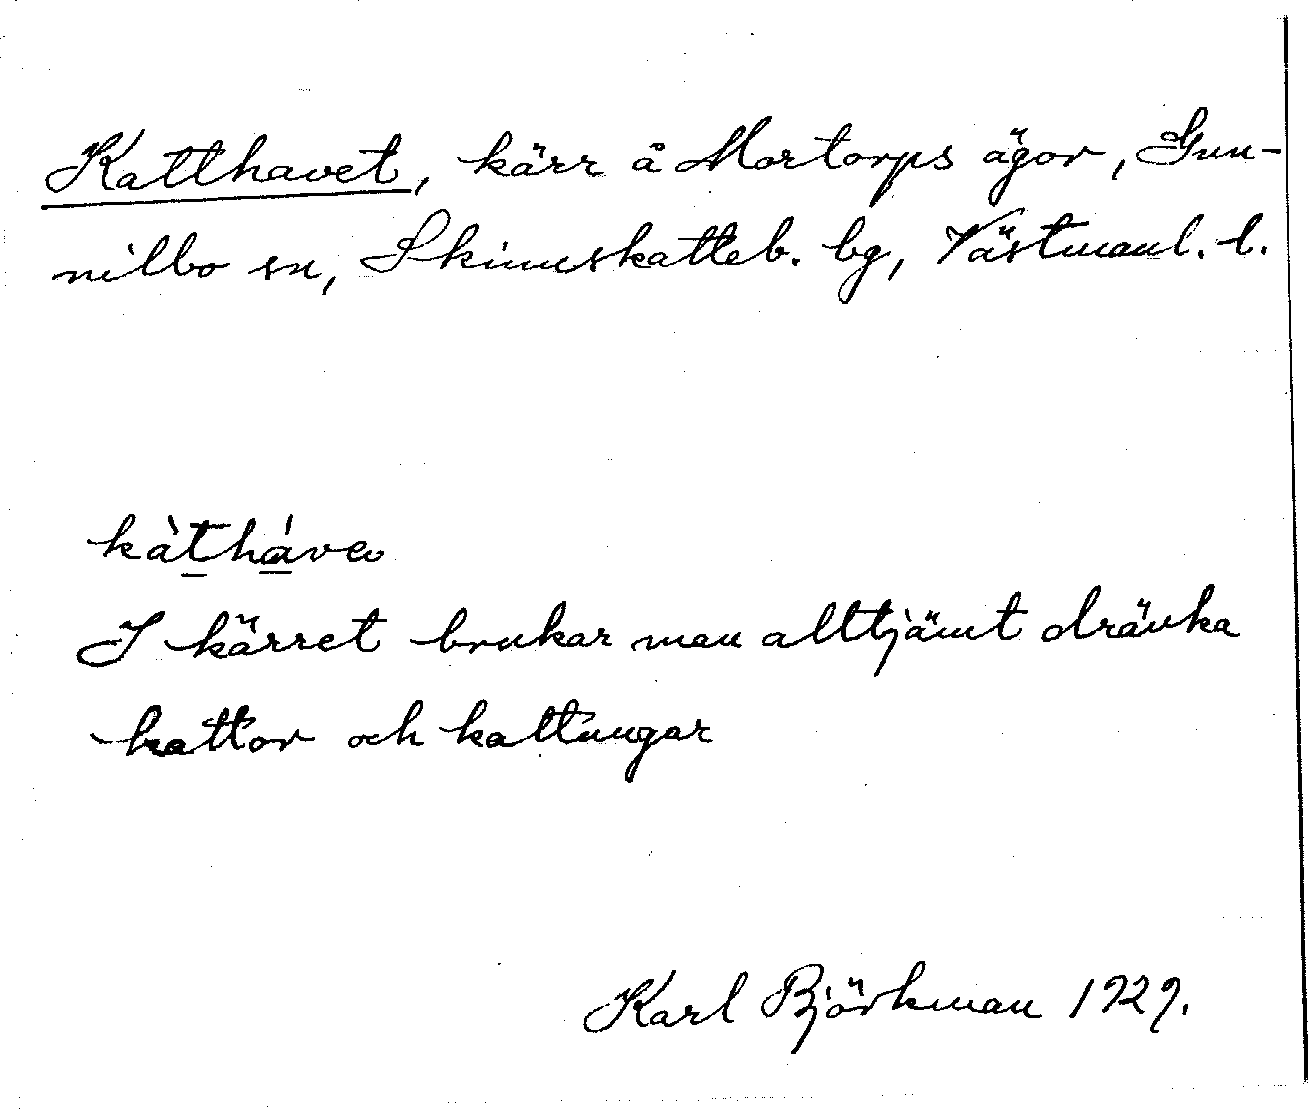 Katthavet, kärr å Mortorps ägor, Gun-
nilbo sn, Skinnskatteb. bg, Västmanl. l.
kàt̲há̲ve
I kärret brukar man alltjämt dränka
kattor och kattungar
Karl Björkman 1929.